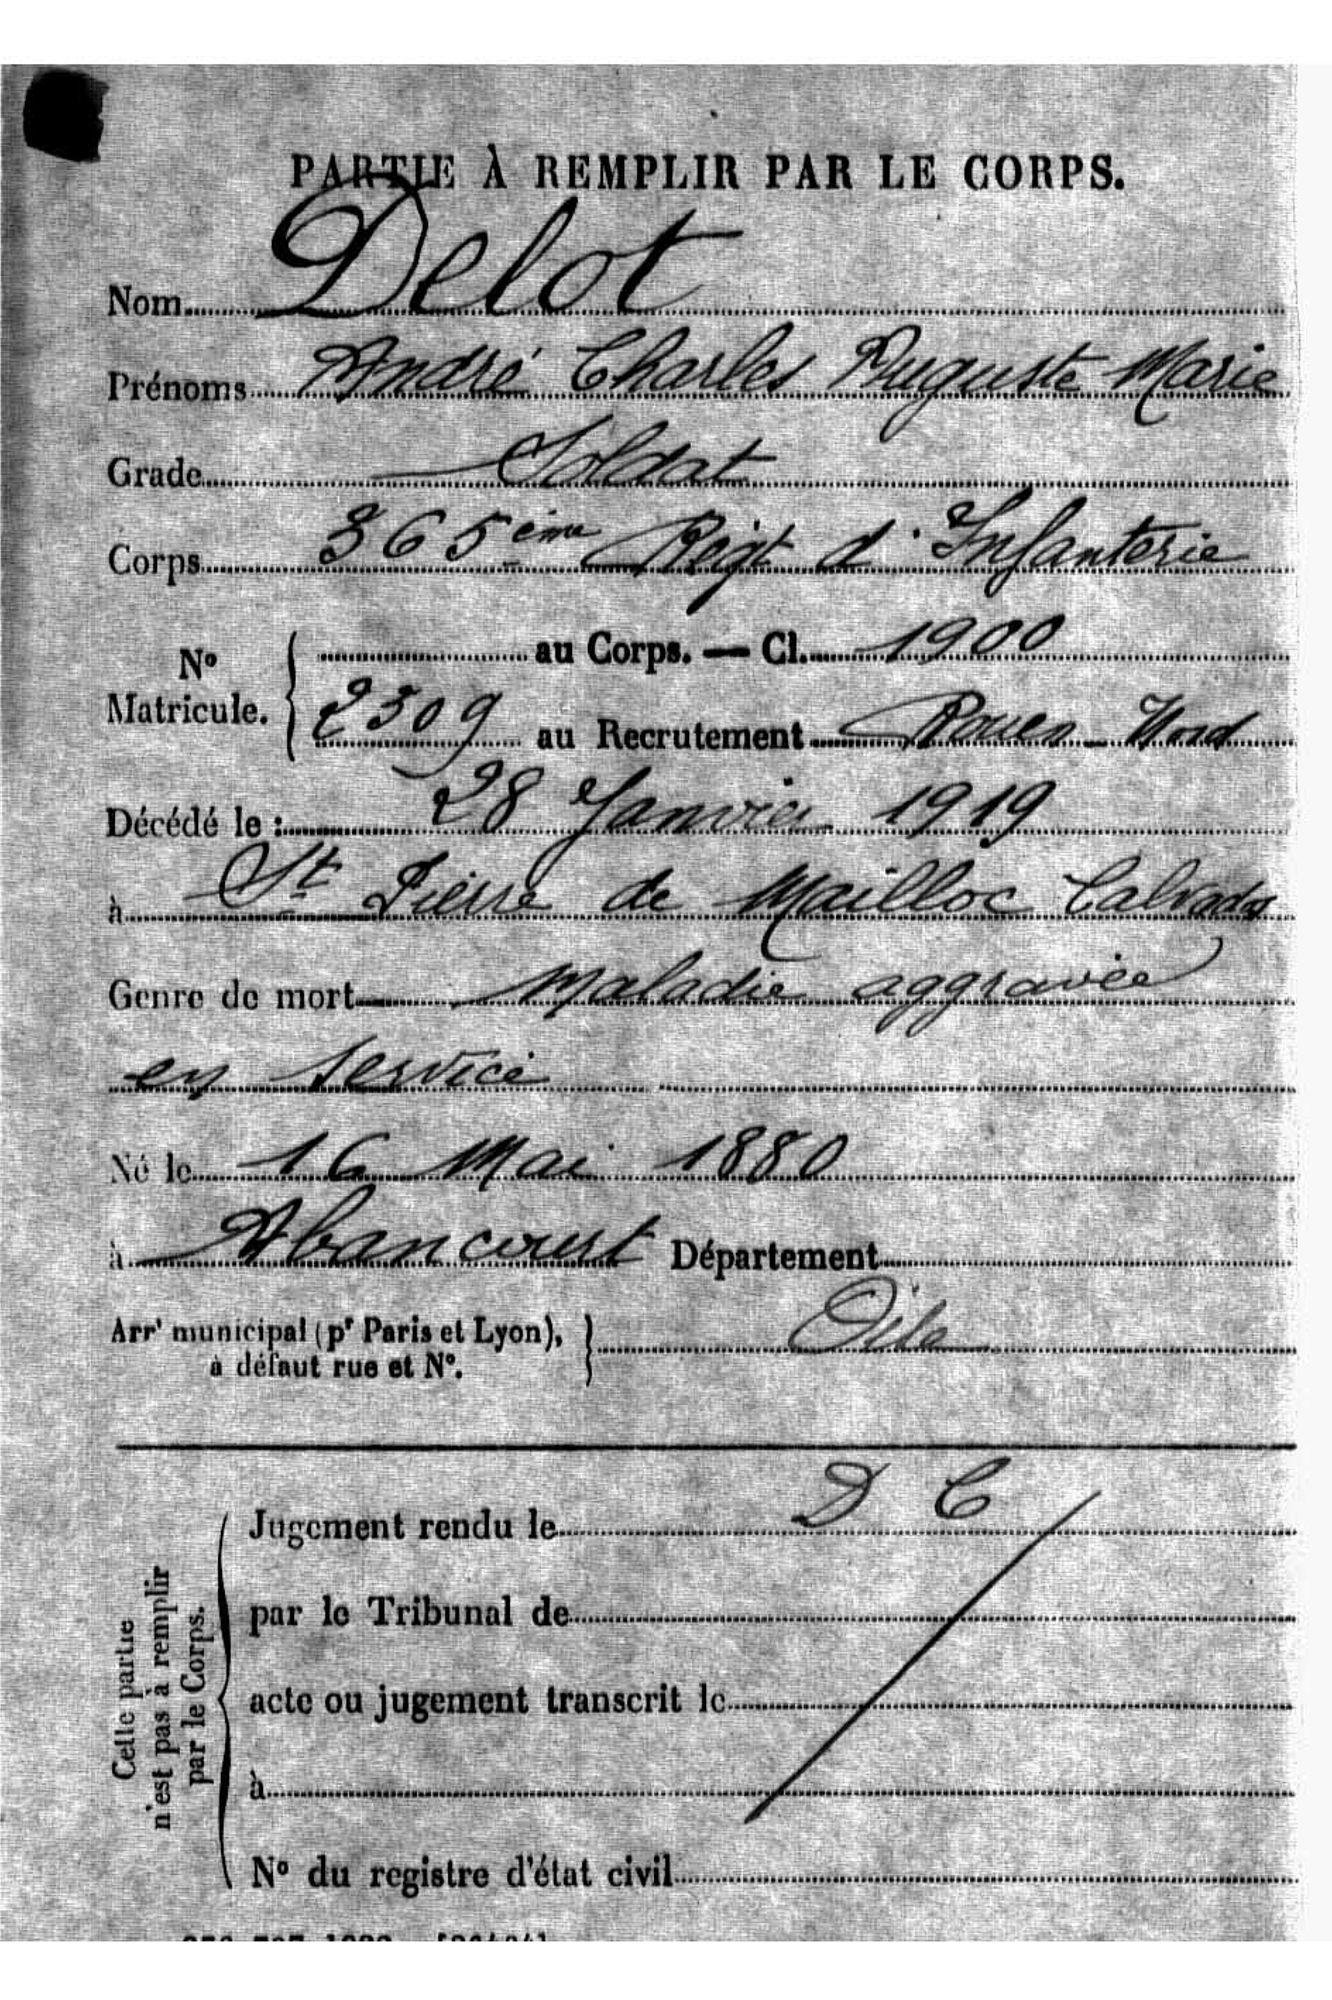 PARTIE À REMPLIR PAR LE CORPS.
Nom Delot
Prénoms André Charles Auguste Marie
Grade Soldat
Corps 365ème Régt d'Infanterie
No Matricule. { au Corps. — Cl. 1900
2309 au Recrutement Rouen Nord
Décédé le : 28 Janvier 1919
à St Pierre de Mailloc Calvados
Genre de mort Maladie aggravée
en service
Né le 16 Mai 1880
à Abancourt Département
Arrt municipal (pr Paris et Lyon), à défaut rue et No. } Oise
Cette partie n'est pas à remplir par le Corps.
Jugement rendu le D C
par le Tribunal de
acte ou jugement transcrit le
à
No du registre d'état civil